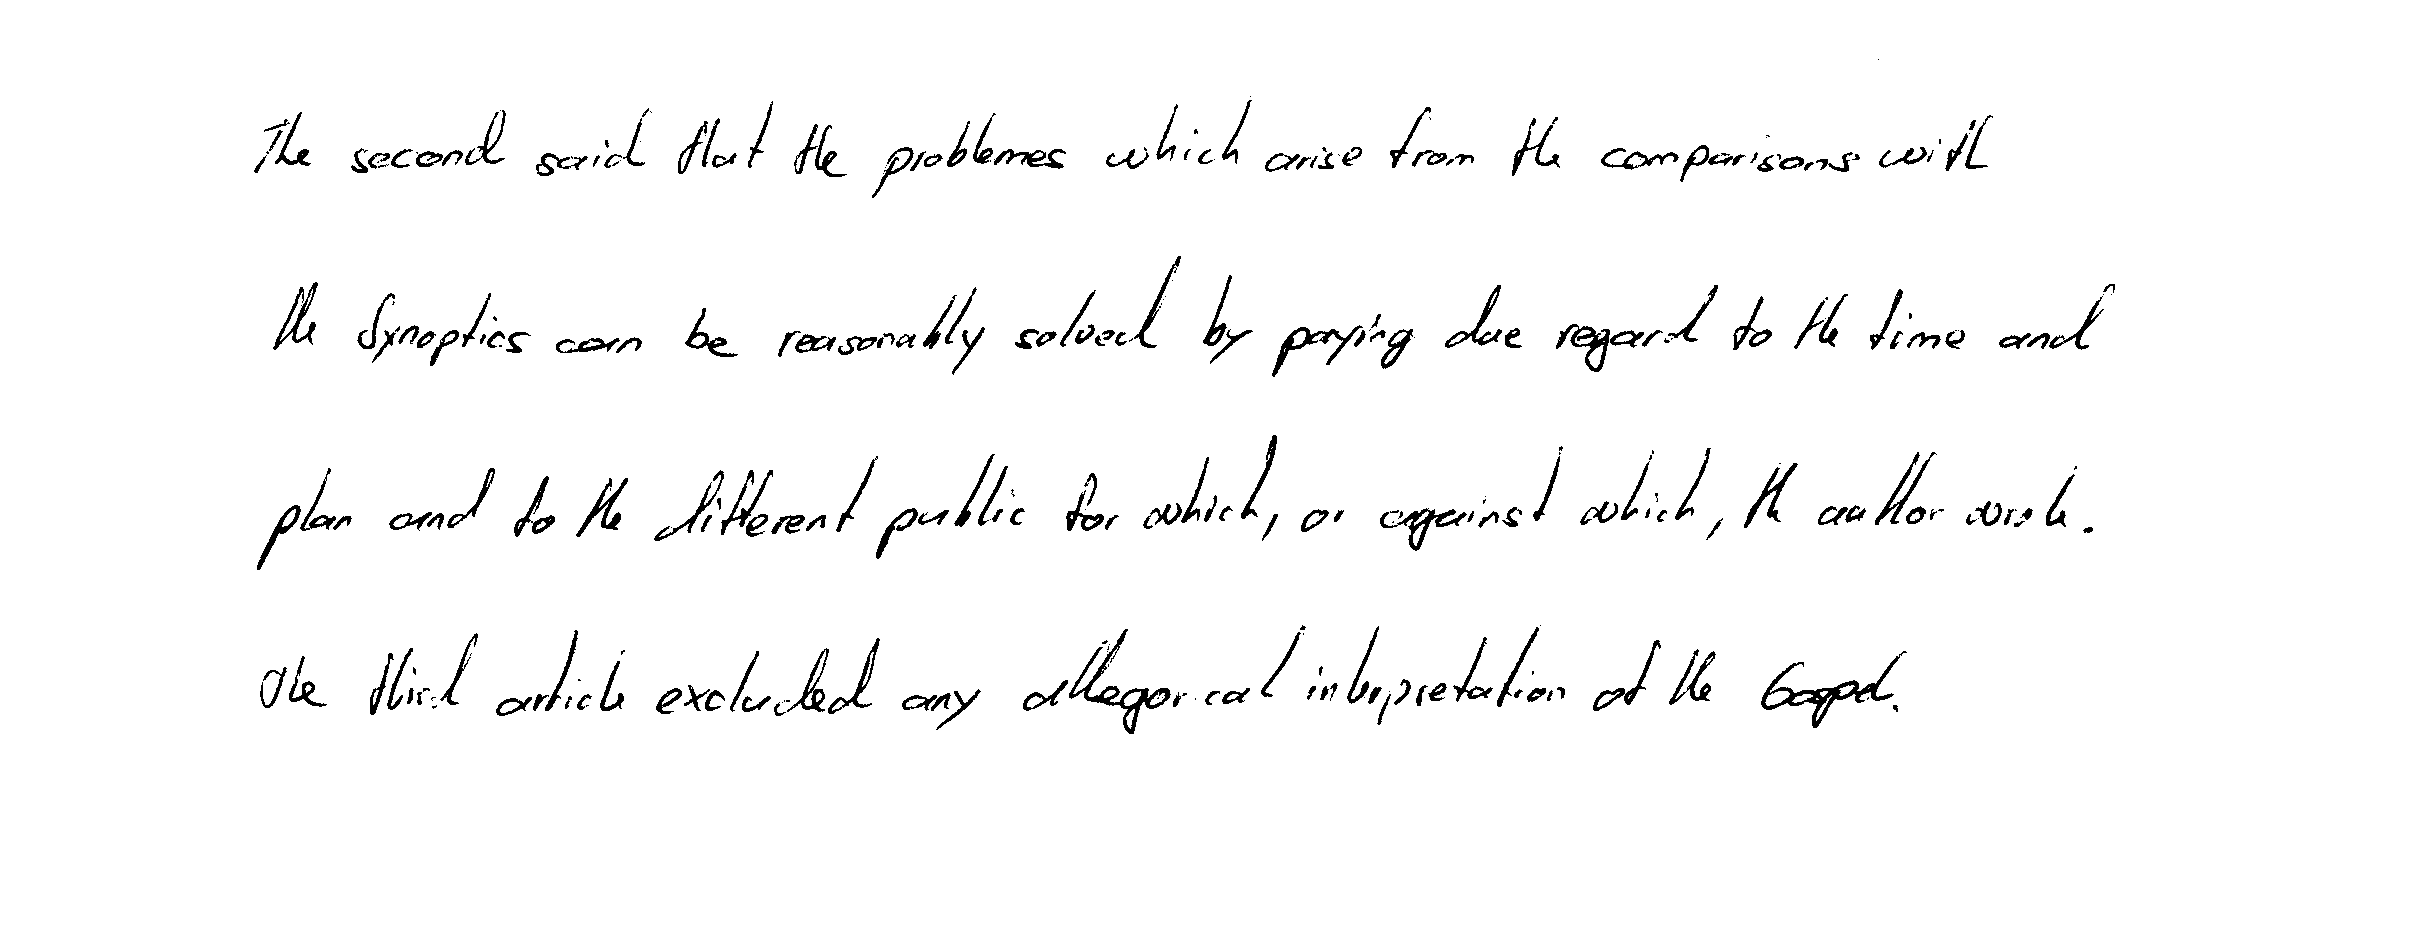 The second said that the problemes which arise from the comparisons with
the Synoptics can be reasonably solved by paying due regard to the time and
plan and to the different public for which, or against which, the author wrote.
The third article excluded any allegorical interpretation of the Gospel.